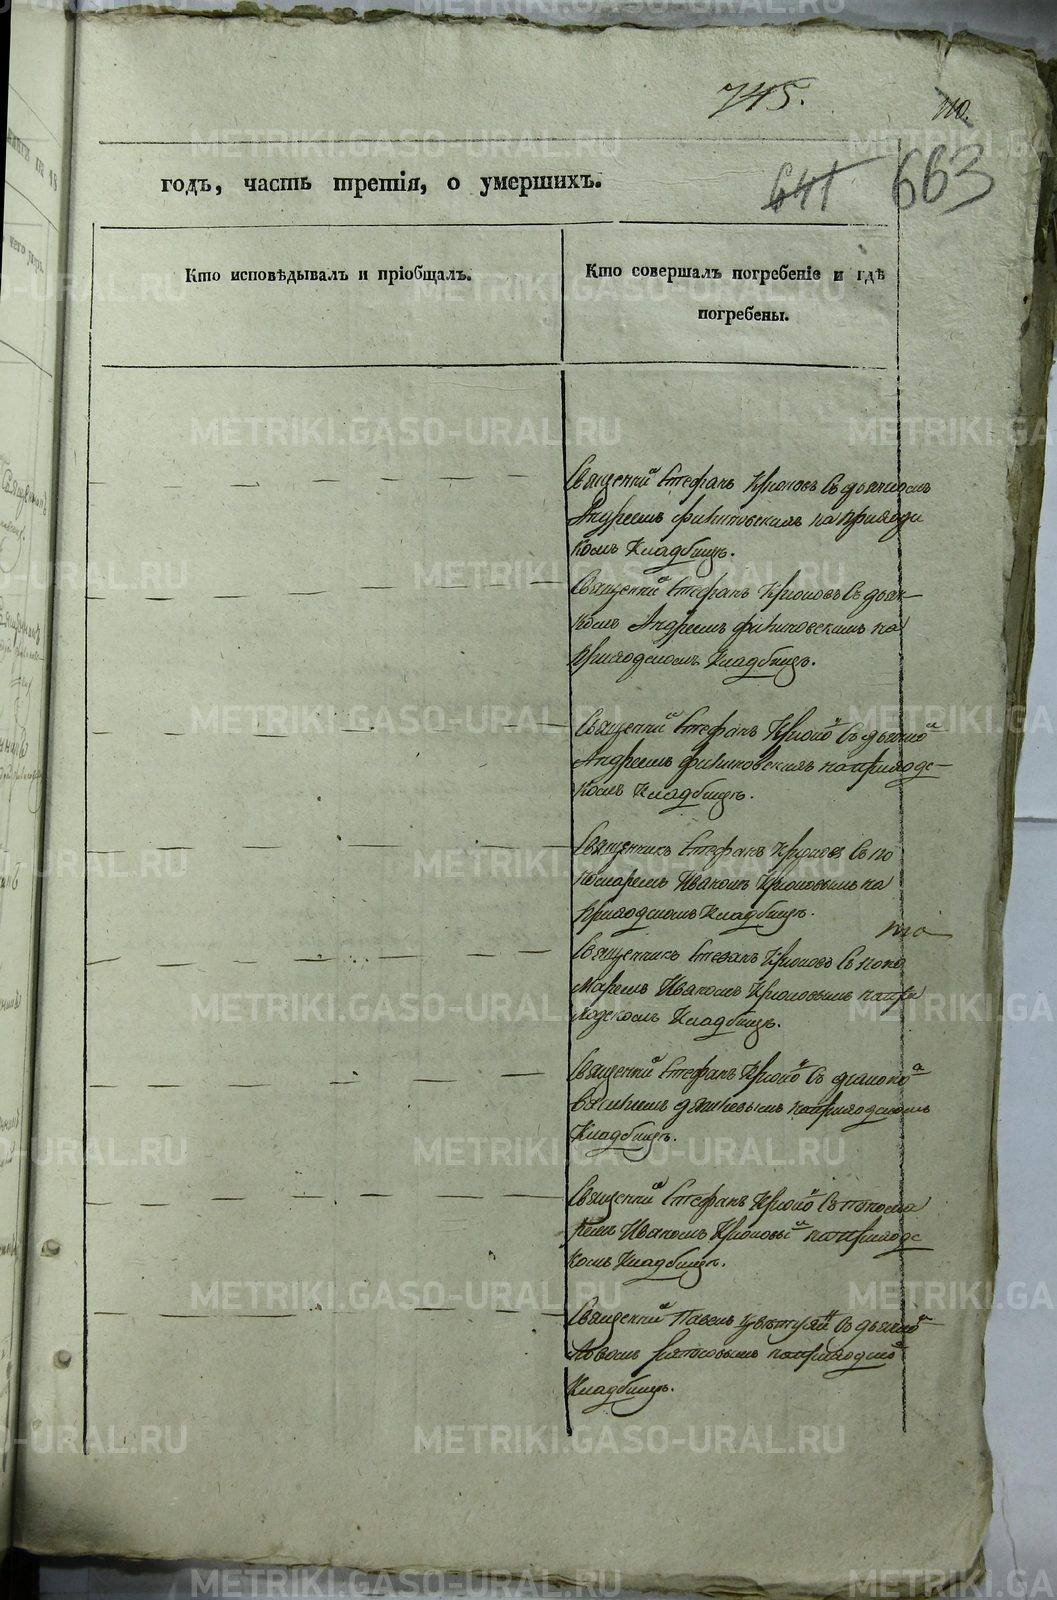 745.
110.
641 663
годъ, часть третія, о умершихъ.
Кто исповѣдывалъ и пріобщалъ.
Кто совершалъ погребеніе и гдѣ
погребены.
Священни Стефанъ Крюковъ съ дьячкомъ
Андреемъ на приходс
комъ Кладбищѣ.
Священни Стефанъ Крюковъ съ дьяч
комъ Андреемъ на
приходскомъ Кладбищѣ.
Священни Стефанъ Крюко съ дьячко
Андреемъ на приходс
комъ Кладбищѣ.
Священникъ Стефанъ Крюковъ съ по
номаремъ Иваномъ Крюковымъ на
приходскомъ Кладбищѣ.
Священникъ Стефанъ Крюковъ съ поно
маремъ Иваномъ Крюковымъ на при
ходскомъ Кладбищѣ.
Священни Стефанъ Крюко съ диаконо
на приходскомъ
Кладбищѣ.
Священни Стефанъ Крюко съ понома
ремъ Иваномъ Крюковы на приходс
комъ Кладбищѣ.
Священни Павелъ съ дьячко
на приходско
Кладбищѣ.
METRIKI.GASO-URAL.RU